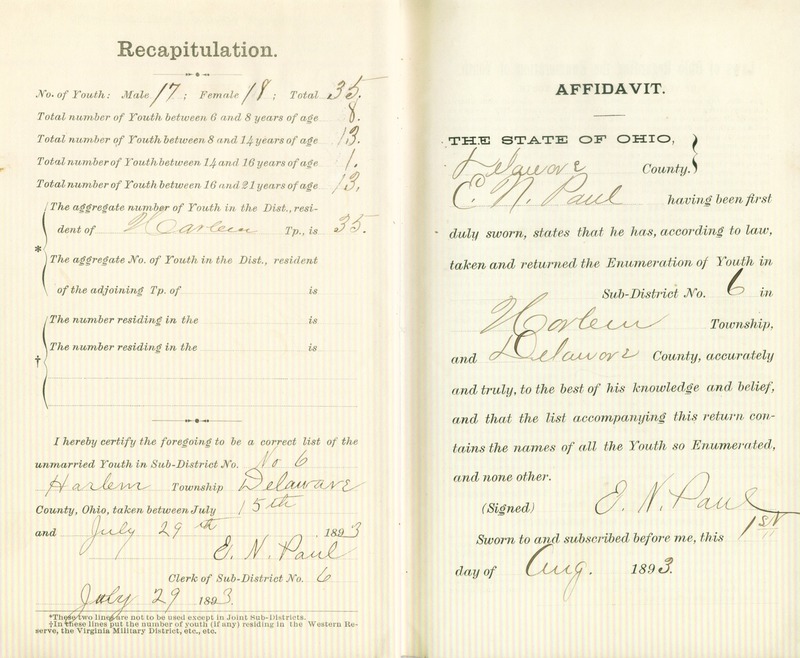 Recapitulation.
No. of Youth: Male 17; Female 18; Total 35.
Total number of Youth between 6 and 8 years of age 8.
Total number of Youth between 8 and 14 years of age 13.
Total number of Youth between 14 and 16 years of age 1.
Total number of Youth between 16 and 21 years of age 13.
The aggregate number of Youth in the Dist., resi-
dent of Harlem Tp., is 35.
*
The aggregate No. of Youth in the Dist., resident
of the adjoining Tp. of is
The number residing in the is
†
The number residing in the is
I hereby certify the foregoing to be a correct list of the
unmarried Youth in Sub-District No. No 6
Harlem Township Delaware
County, Ohio, taken between July 15th
and July 29th 1893
E. N. Paul
Clerk of Sub-District No. 6
July 29 1893.
*These two lines are not to be used except in Joint Sub-Districts.
†In these lines put the number of youth (if any) residing in the Western Re-
serve, the Virginia Military District, etc., etc.
AFFIDAVIT.
THE STATE OF OHIO,
Delaware County.
E. N. Paul having been first
duly sworn, states that he has, according to law,
taken and returned the Enumeration of Youth in
Sub-District No. 6 in
Harlem Township,
and Delaware County, accurately
and truly, to the best of his knowledge and belief,
and that the list accompanying this return con-
tains the names of all the Youth so Enumerated,
and none other.
(Signed) E. N. Paul
Sworn to and subscribed before me, this 1st
day of Aug. 1893.